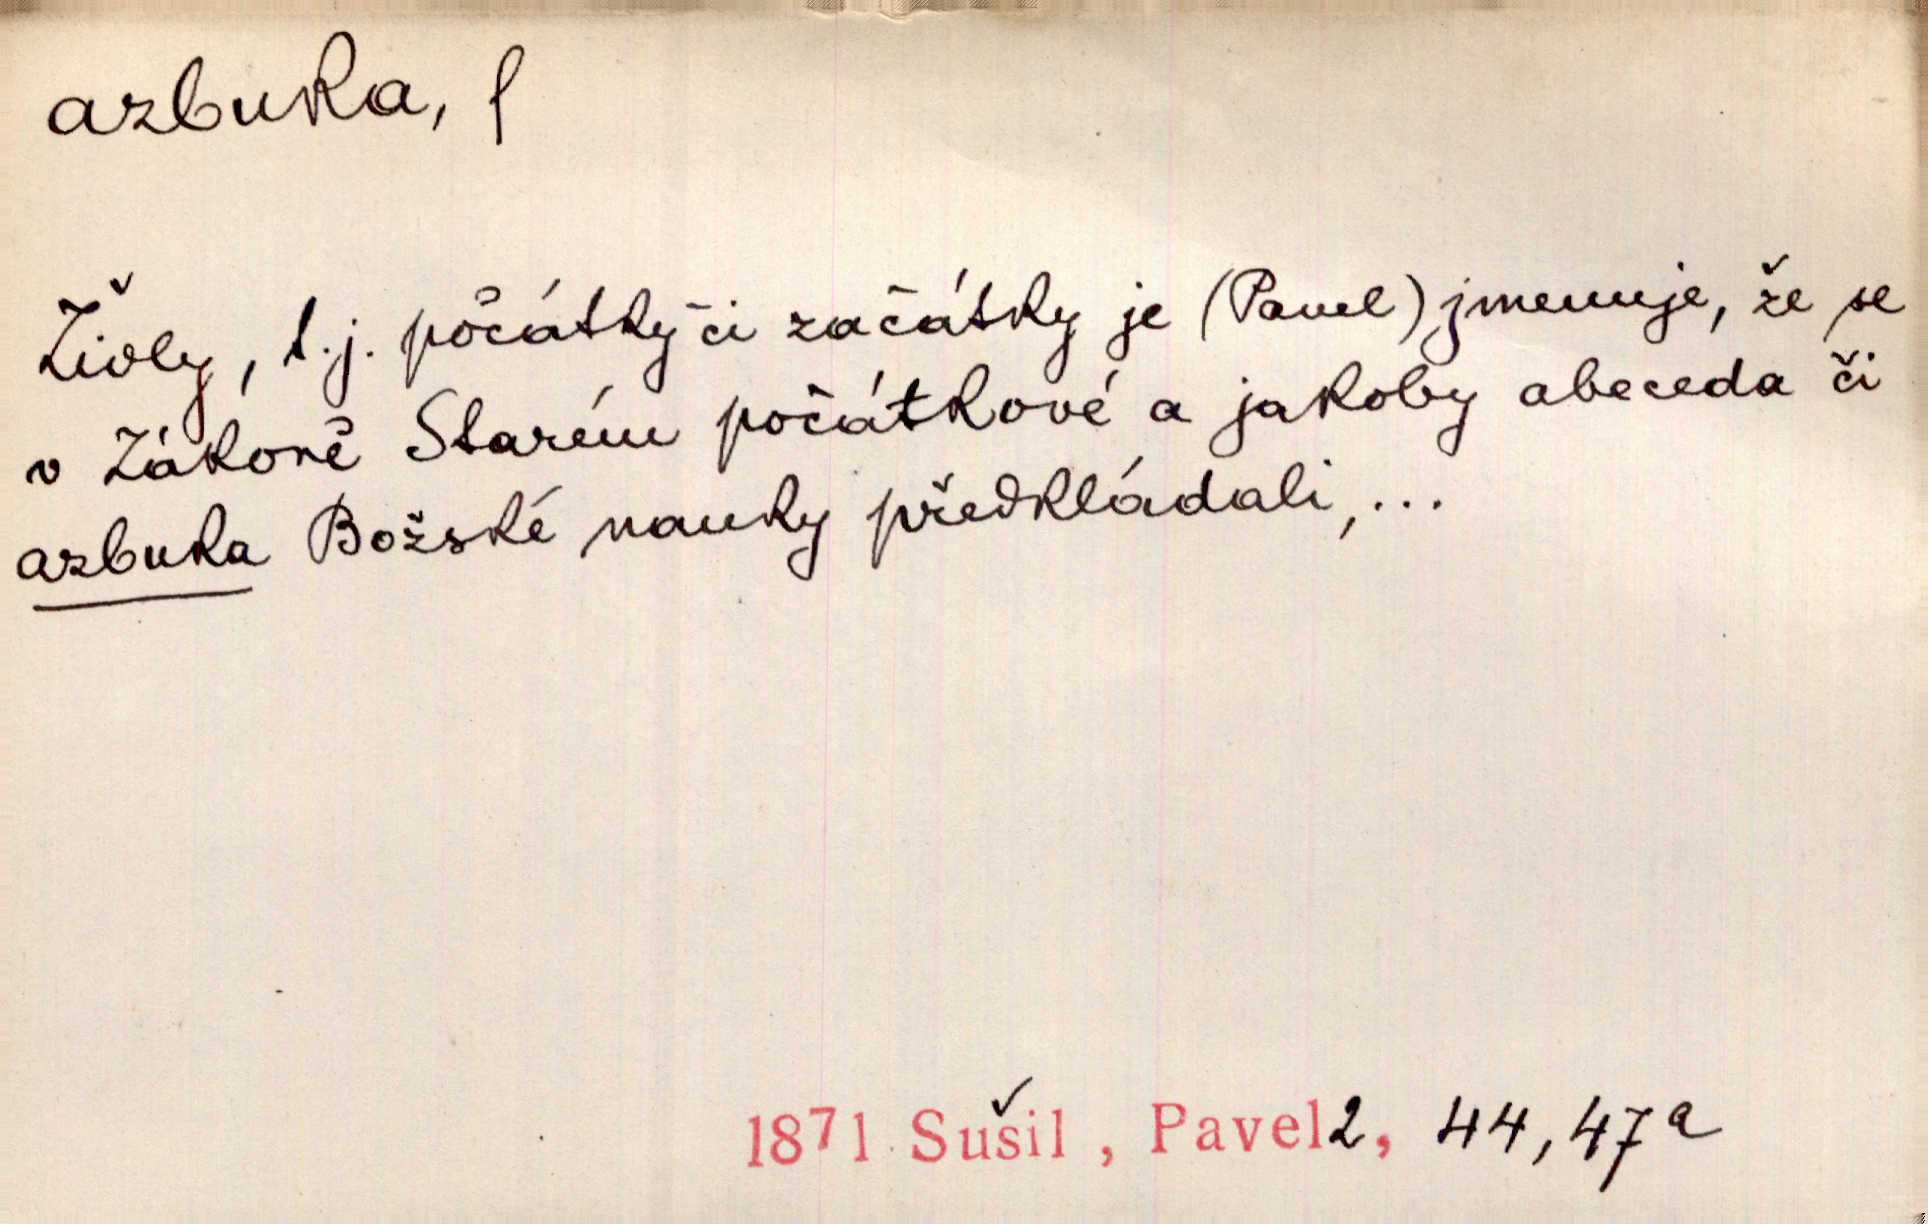 azbuka, f
Živly, t.j. počátky či začátky je (Pavel) jmenuje, že se
v Zákoně Starém počátkové a jakoby abeceda či
azbuka Božské nauky předkládali,...
1871 Sušil, Pavel 2, 44, 47a